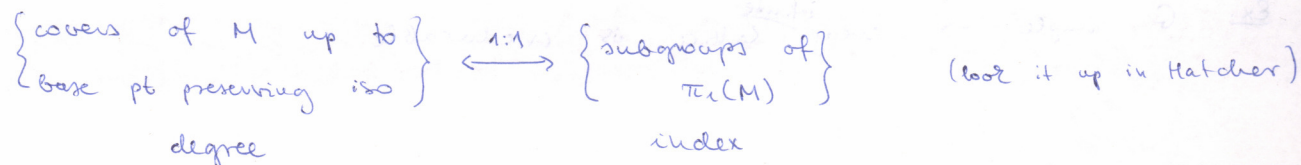 {covers of M up to
base pt preserving iso} ⟷ 1:1 {subgroups of
π₁(M)} (look it up in Hatcher)
degree index